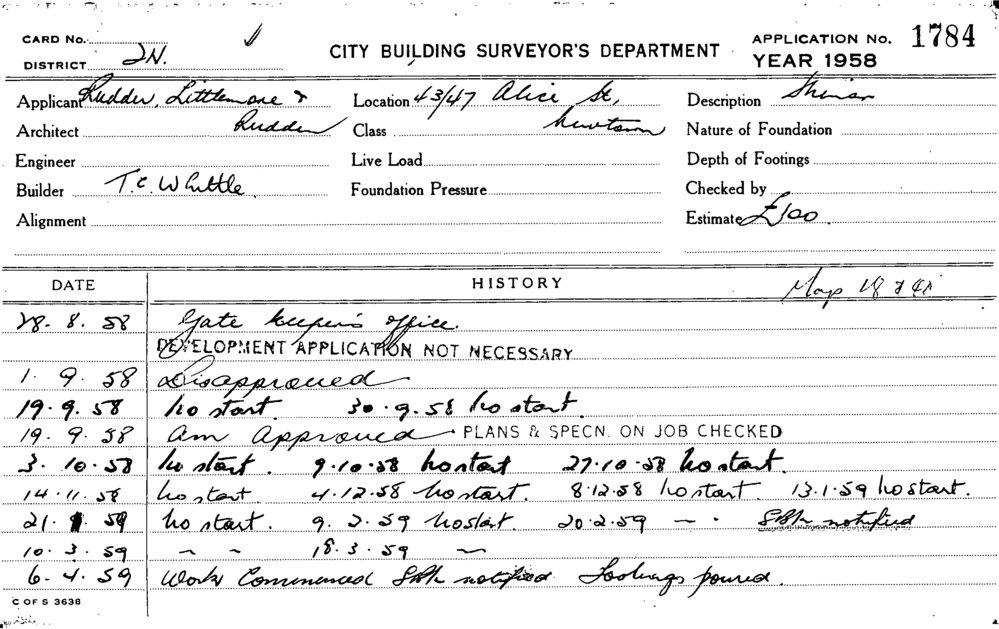 CARD No.
DISTRICT 2N.
CITY BUILDING SURVEYOR'S DEPARTMENT
APPLICATION No. 1784
YEAR 1958
Applicant Rudder, Littlemore &
Location 43/47 Alice St,
Description
Architect Rudder
Class Newtown
Nature of Foundation
Engineer
Live Load
Depth of Footings
Builder T.C. Whittle
Foundation Pressure
Checked by
Alignment
Estimate £100
DATE HISTORY
Map 18
28. 8. 58 Gate keeper's office.
DEVELOPMENT APPLICATION NOT NECESSARY
1. 9. 58 Disapproved
19. 9. 58 No start. 30. 9. 58 No start.
19. 9. 58 Am Approved PLANS & SPECN. ON JOB CHECKED
3. 10. 58 No start. 9.10.58 No start 27.10.58 No start.
14. 11. 58 No start. 4.12.58 No start. 8.12.58 No start. 13.1.59 No start.
21. 1. 59 No start. 9. 2. 59 No start. 20.2.59 — . notified
10. 3. 59 ~ ~ 18. 3. 59 ~
6. 4. 59 Work Commenced notified Footings poured.
C OF S 3638